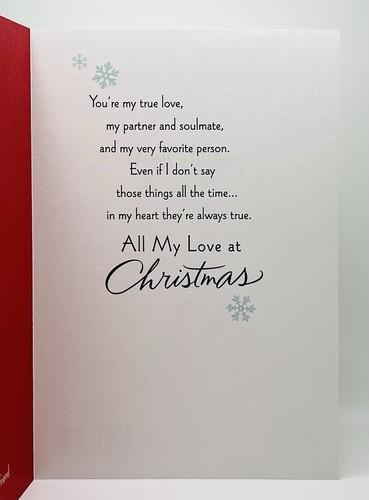 You're my true love,
my partner and soulmate,
and my very favorite person.
Even if I don't say
those things all the time...
in my heart they're always true.
All My Love at
Christmas